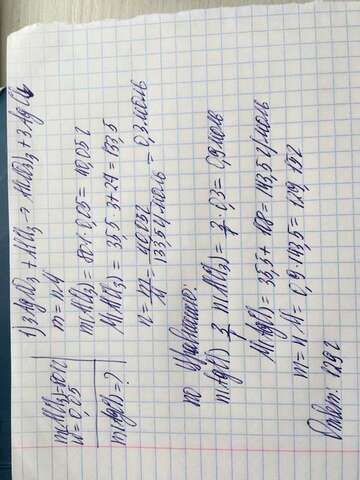 1) 3AgNO₃ + AlCl₃ → Al(NO₃)₃ + 3AgCl↓
m = n·M
m(AlCl₃) = 801·0,05 = 40,05 г
M(AlCl₃) = 35,5·3+27 = 133,5
n = m/M = 40,05г/133,5 г/моль = 0,3 моль
по уравнению:
n(AgCl) = 3/1 n(AlCl₃) = 3/1·0,3 = 0,9 моль
M(AgCl) = 35,5 + 108 = 143,5 г/моль
m = n·M = 0,9·143,5 = 129,15г
Ответ: 129 г
w = 0,05
m(AgCl) = ?